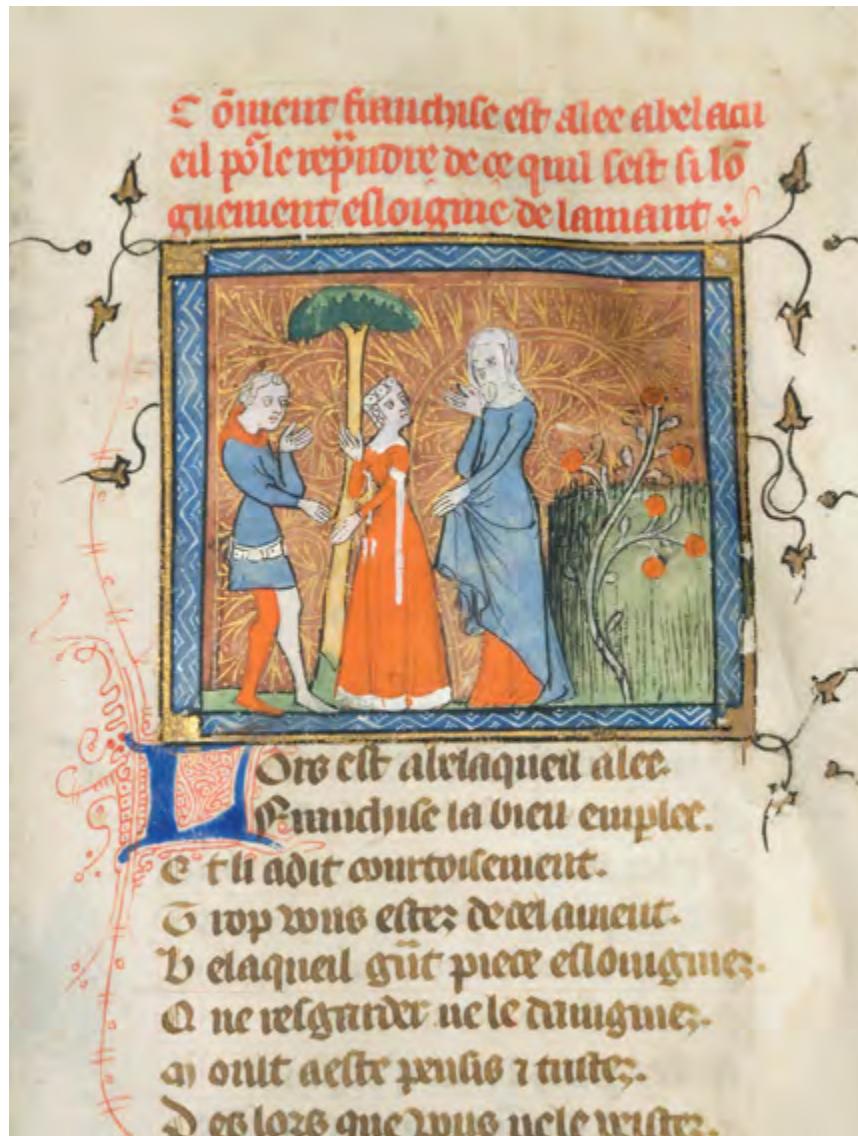 Cõment franchise est alee abelacu
eil põ le rep̃ndre de ce quil sest si lõ
guement esloignie de lamant
Lors est abelaqueil alee.
Franchise la bien emplee.
Et li adit courtoisement.
Trop vous estez decel ament.
Belaqueil gñt piece eslouignies.
Qne resgarder ne le daingnies.
Moult aeste pensis ⁊ tristez.
Des lors que vous nele veistez.